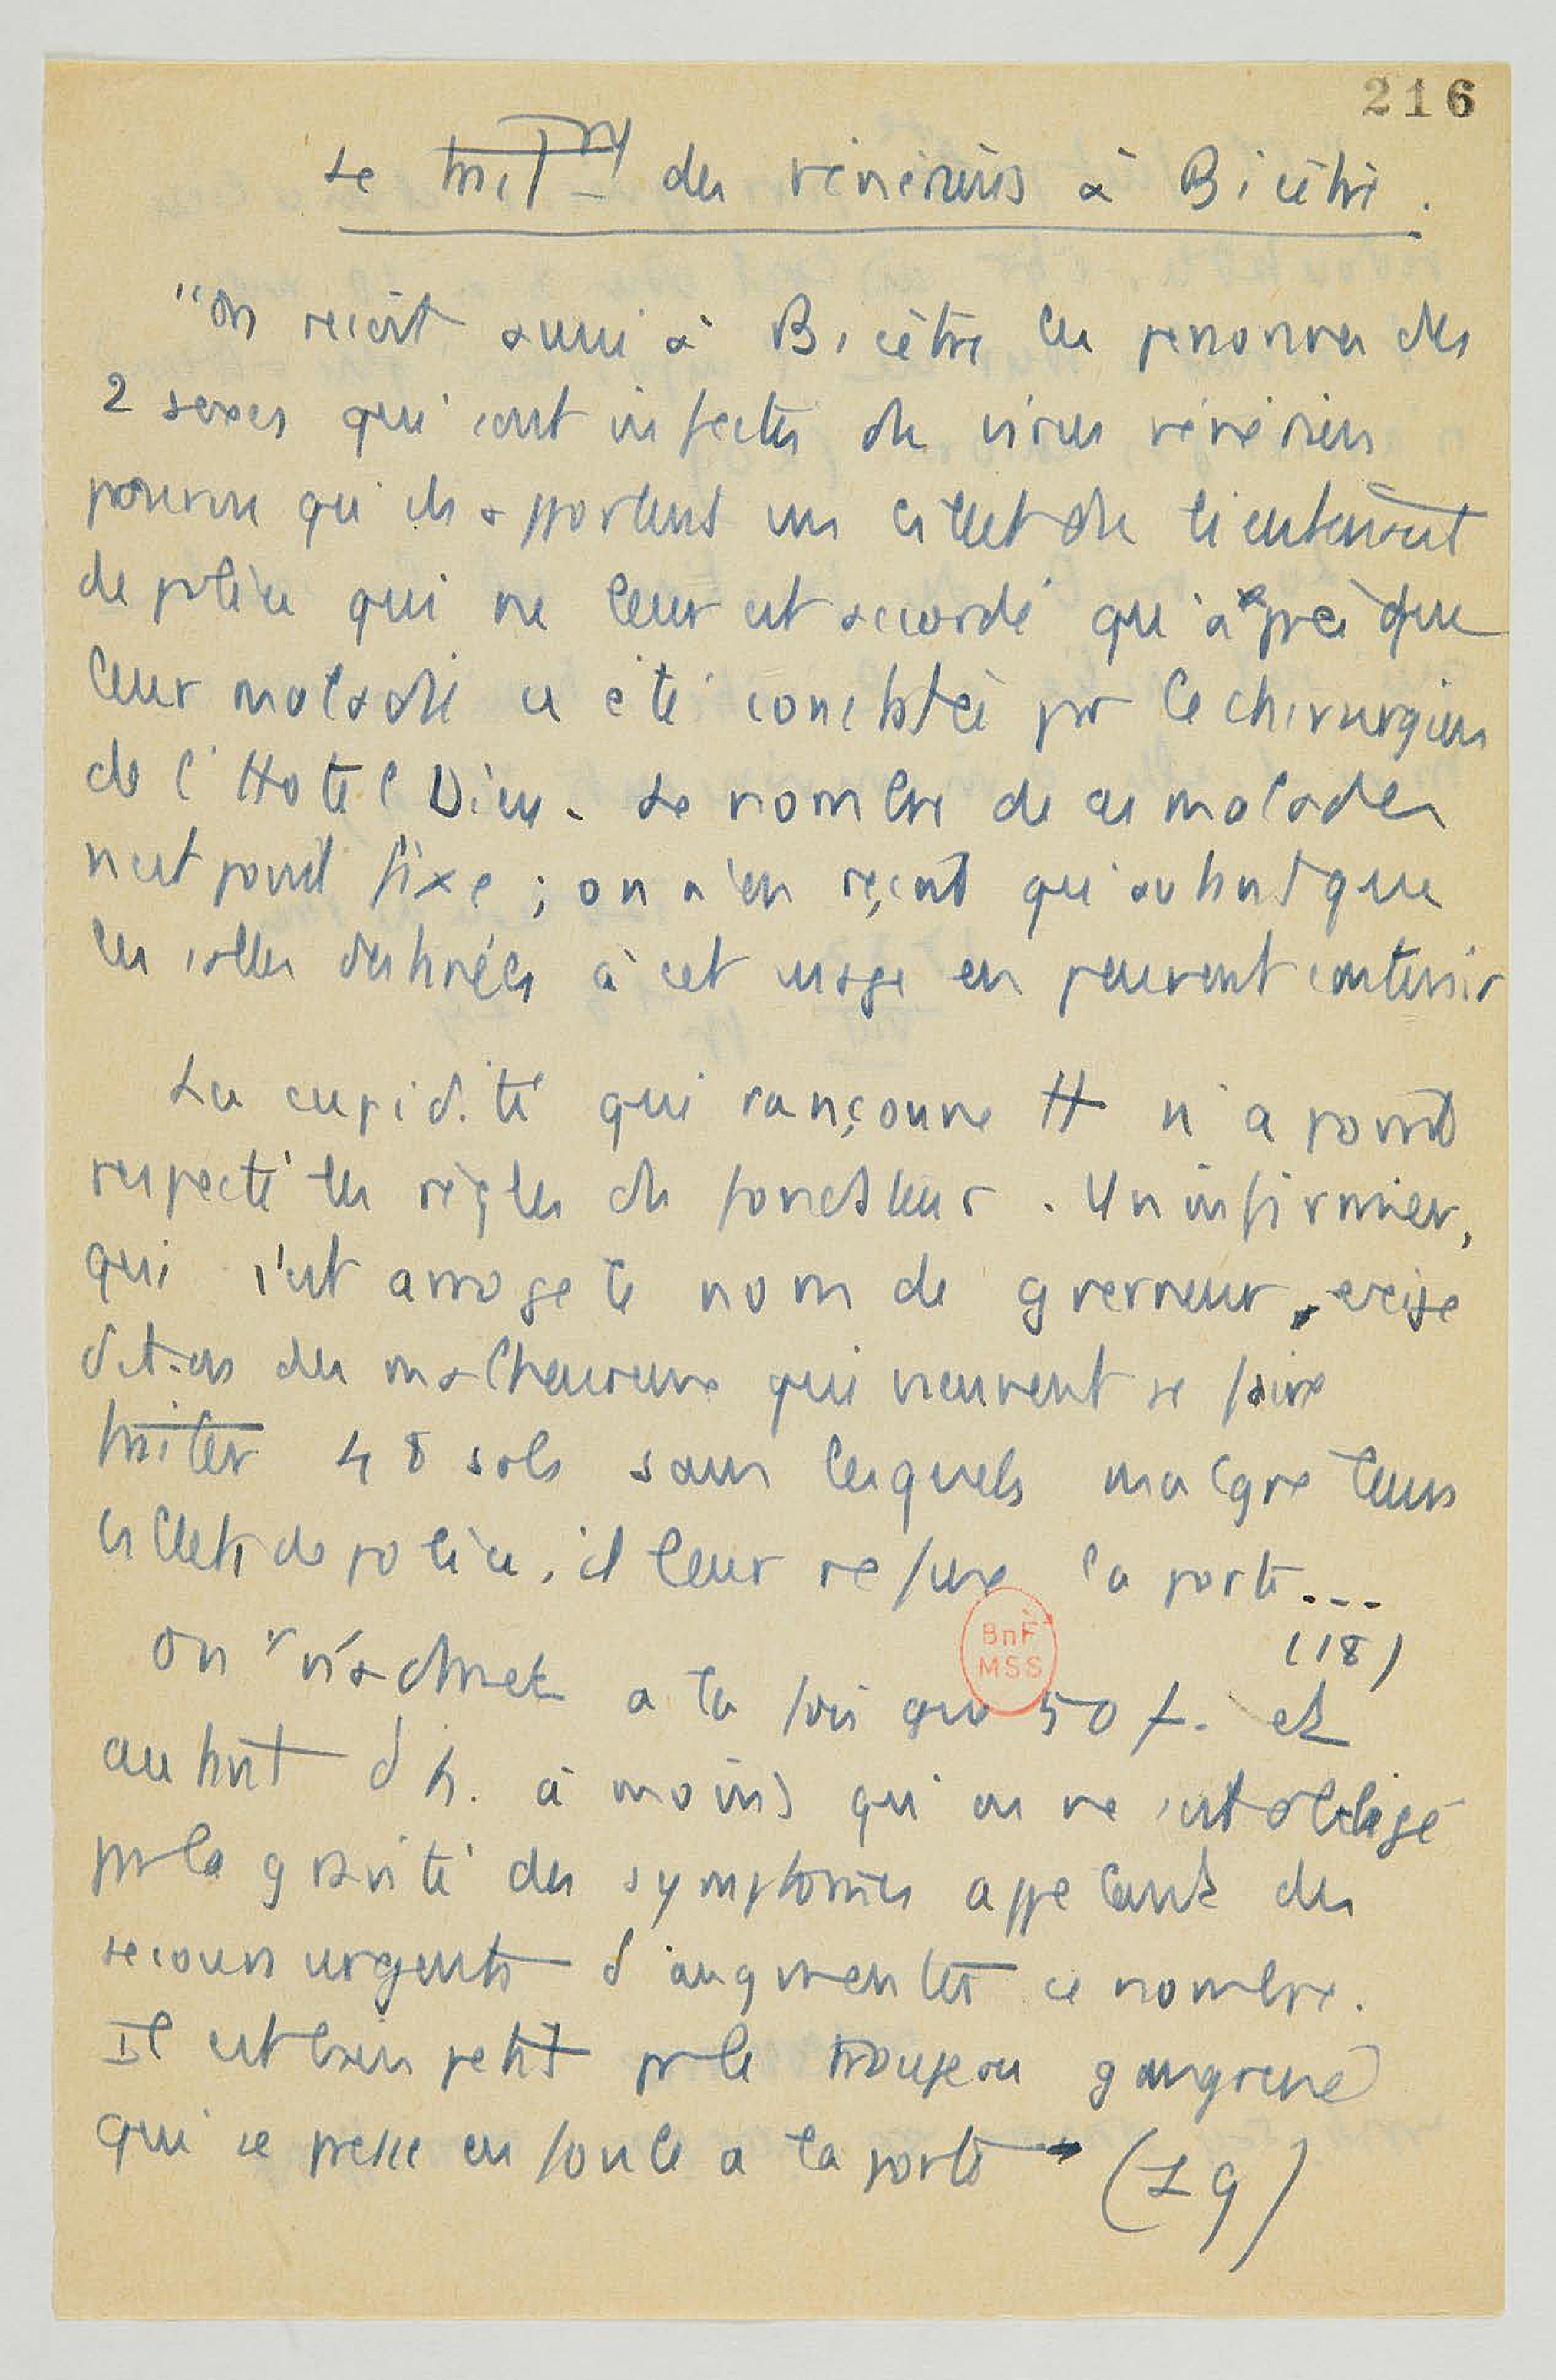 216
Le trait^t des vénériens à Bicêtre.
"On reçoit aussi à Bicêtre les personnes des
2 sexes qui sont infectés du virus vénérien
pourvu qu'ils apportent un billet du lieutenant
de police qui ne leur est accordé qu'après que
leur maladie a été constatée par le chirurgien
de l'Hotel Dieu. Le nombre de ces malades
n'est point fixe ; on n'en reçoit qu'autant que
les salles destinées à cet usage en peuvent contenir
La cupidité qui rançonne tt n'a point
respecté les règles du fondateur. Un infirmier,
qui s'est arrogé le nom de gouverneur, exige
dit-on des malheureux qui viennent se faire
traiter 48 sols sans lesquels malgré leurs
billets de police, il leur refuse la porte...
(18)
BnF
MSS
On n'admet a la fois que 50 f. et
autant d'h. à moins qu'on ne soit obligé
par la gravité des symptomes appelant des
secours urgents d'augmenter ce nombre.
Il est bien petit pr le troupeau gangrené
qui se presse en foule a la porte (19)